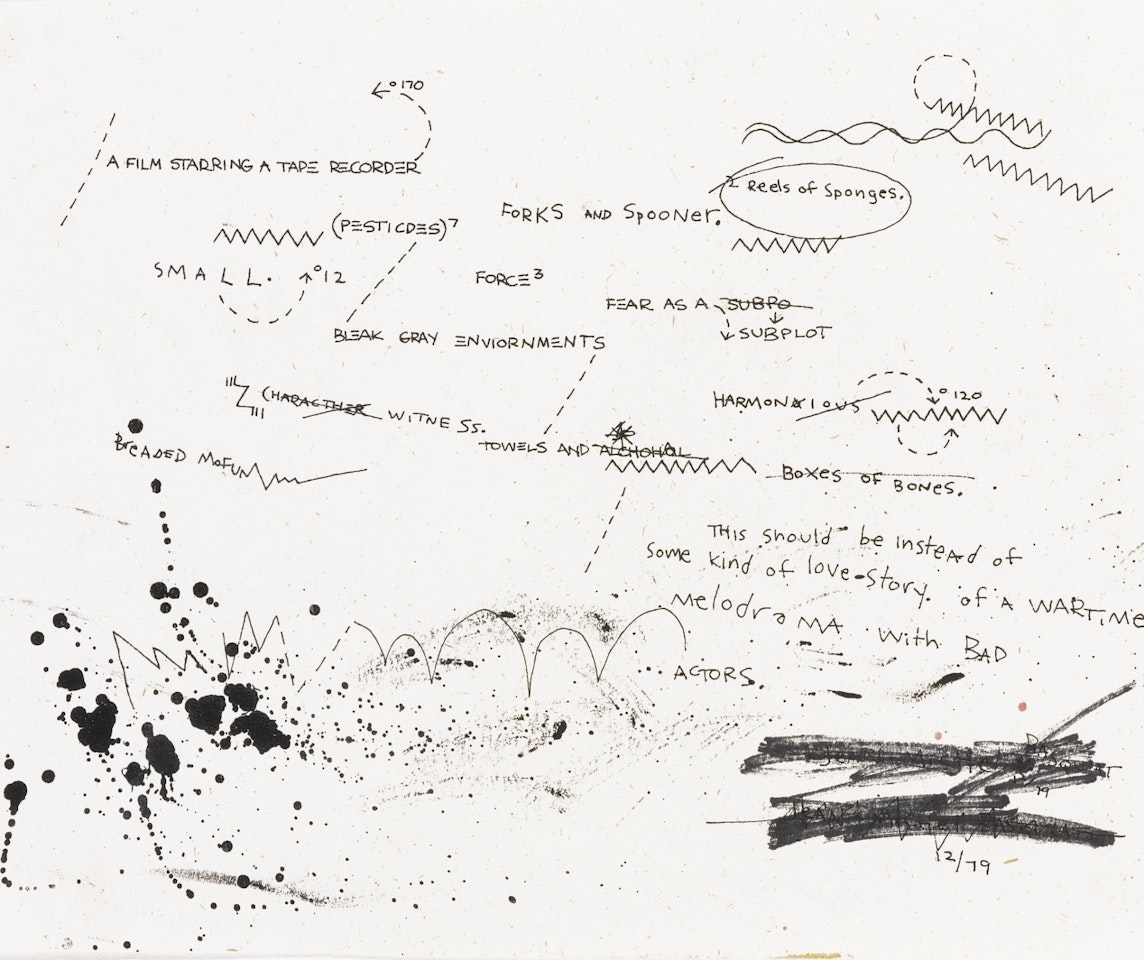 °170
A FILM STARRING A TAPE RECORDER
2 Reels of Sponges.
FORKS AND SpOONer.
(PESTICDES)7
SMALL. °12
FORCE3
FEAR AS A SUBPO
SUBPLOT
BLEAK GRAY ENVIORNMENTS
°120
HARMONAIOUS
CHARACTHER WITNESS.
BreADED MOFUM
TOWELS AND ALCHOHOL
BOXES OF BONES.
THIS should be insteAd of
Some kind of love-story. of A WARTiMe
MelodraMA with BAD
ACTORS.
79
12/79